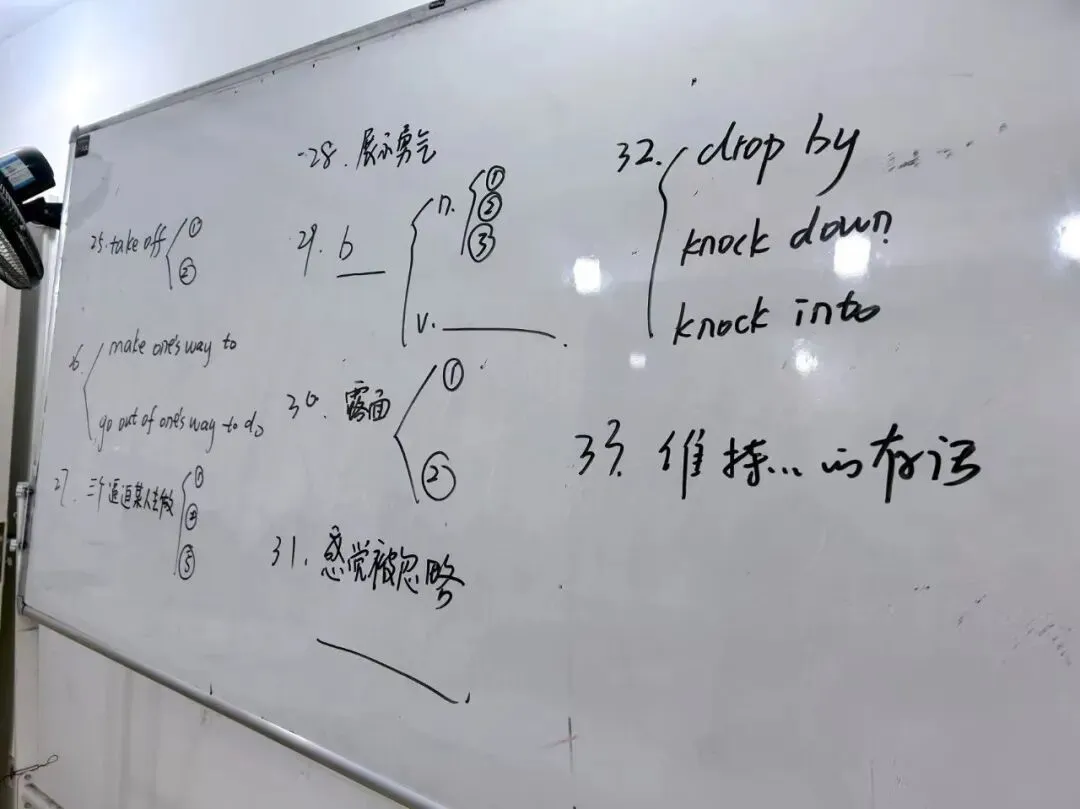 25. take off ①
②
26. make one's way to
go out of one's way to do
27. 三个逼迫某人去做 ①
②
③
28. 展示勇气
29. b n. ①
②
③
v.
30. 露面 ①
②
31. 感觉被忽略
32. drop by
knock down
knock into
33. 维持...的存活